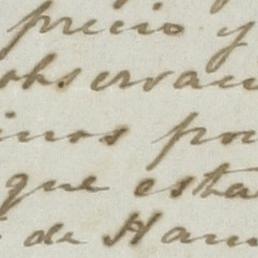 precio y
observac
inos por
que esta
de Ham